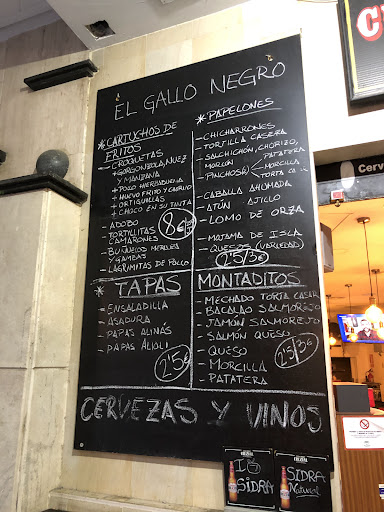 EL GALLO NEGRO
* CARTUCHOS DE
FRITOS
- CROQUETAS
+ GORGONZOLA, NUEZ
Y MANZANA
+ POLLO HIERBABUENA
+ HUEVO FRITO Y CHORIZO
+ ORTIGUILLAS
+ CHOCO EN SU TINTA
- ADOBO
- TORTILLITAS
CAMARONES
- BUÑUELOS MERLUZA
Y GAMBAS
- LAGRIMITAS DE POLLO
8€
* PAPELONES
- CHICHARRONES
- TORTILLA CASERA
- SALCHICHÓN, CHORIZO,
MORCÓN
PATATERA
- PINCHOS
MORCILLA
TORTA CASAR
- CABALLA AHUMADA
- ATÚN AJILLO
- LOMO DE ORZA
- MOJAMA DE ISLA
- QUESOS (VARIEDAD)
2'5/3€
* TAPAS
- ENSALADILLA
- ASADURA
- PAPAS ALIÑÁS
- PAPAS ALIOLI
2'5
MONTADITOS
- MECHADO TORTA CASAR
- BACALAO SALMOREJO
- JAMÓN SALMOREJO
- SALMÓN QUESO
- QUESO
- MORCILLA
- PATATERA
2'5/3€
CERVEZAS Y VINOS
SIDRA
SIDRA
Natural
Cerv